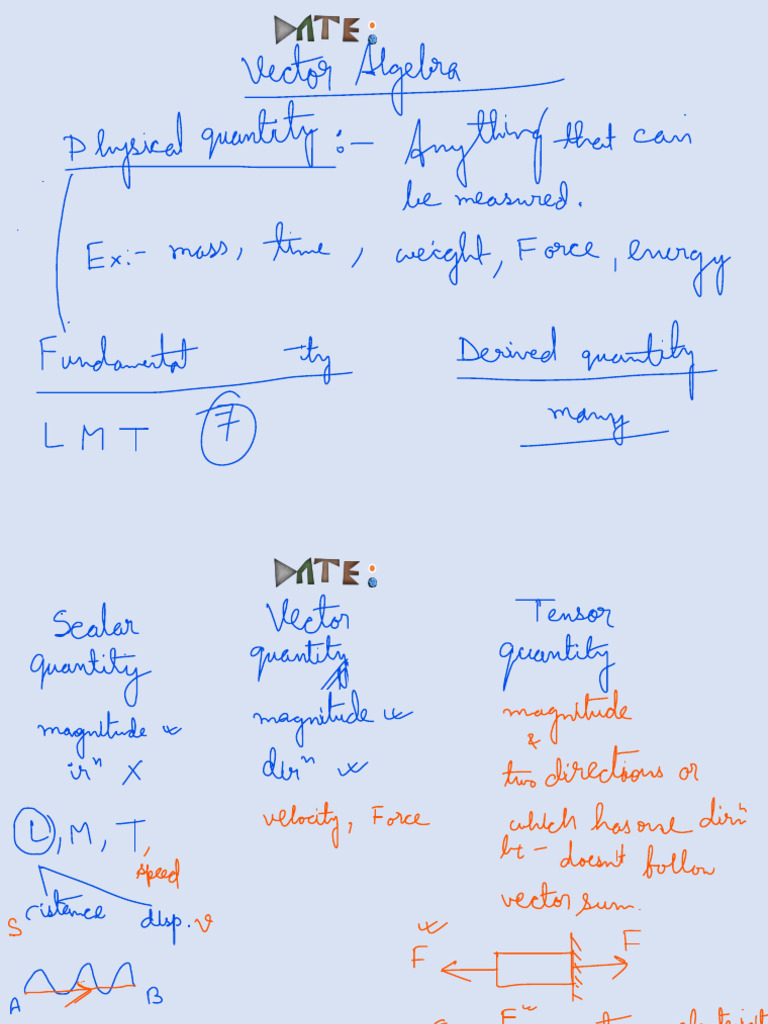 DATE:
Vector Algebra
Physical quantity :- Anything that can
be measured.
Ex:- mass, time, weight, Force, energy
Fundamental -ty Derived quantity
L M T 7 many
DATE:
Scalar Vector Tensor
quantity quantity quantity
magnitude magnitude magnitude
irⁿ X dirⁿ &
two directions or
L, M, T, velocity, Force which has one dirⁿ
speed bt - doesn't follow
ristance disp. v vector sum.
S
F F
A B
F